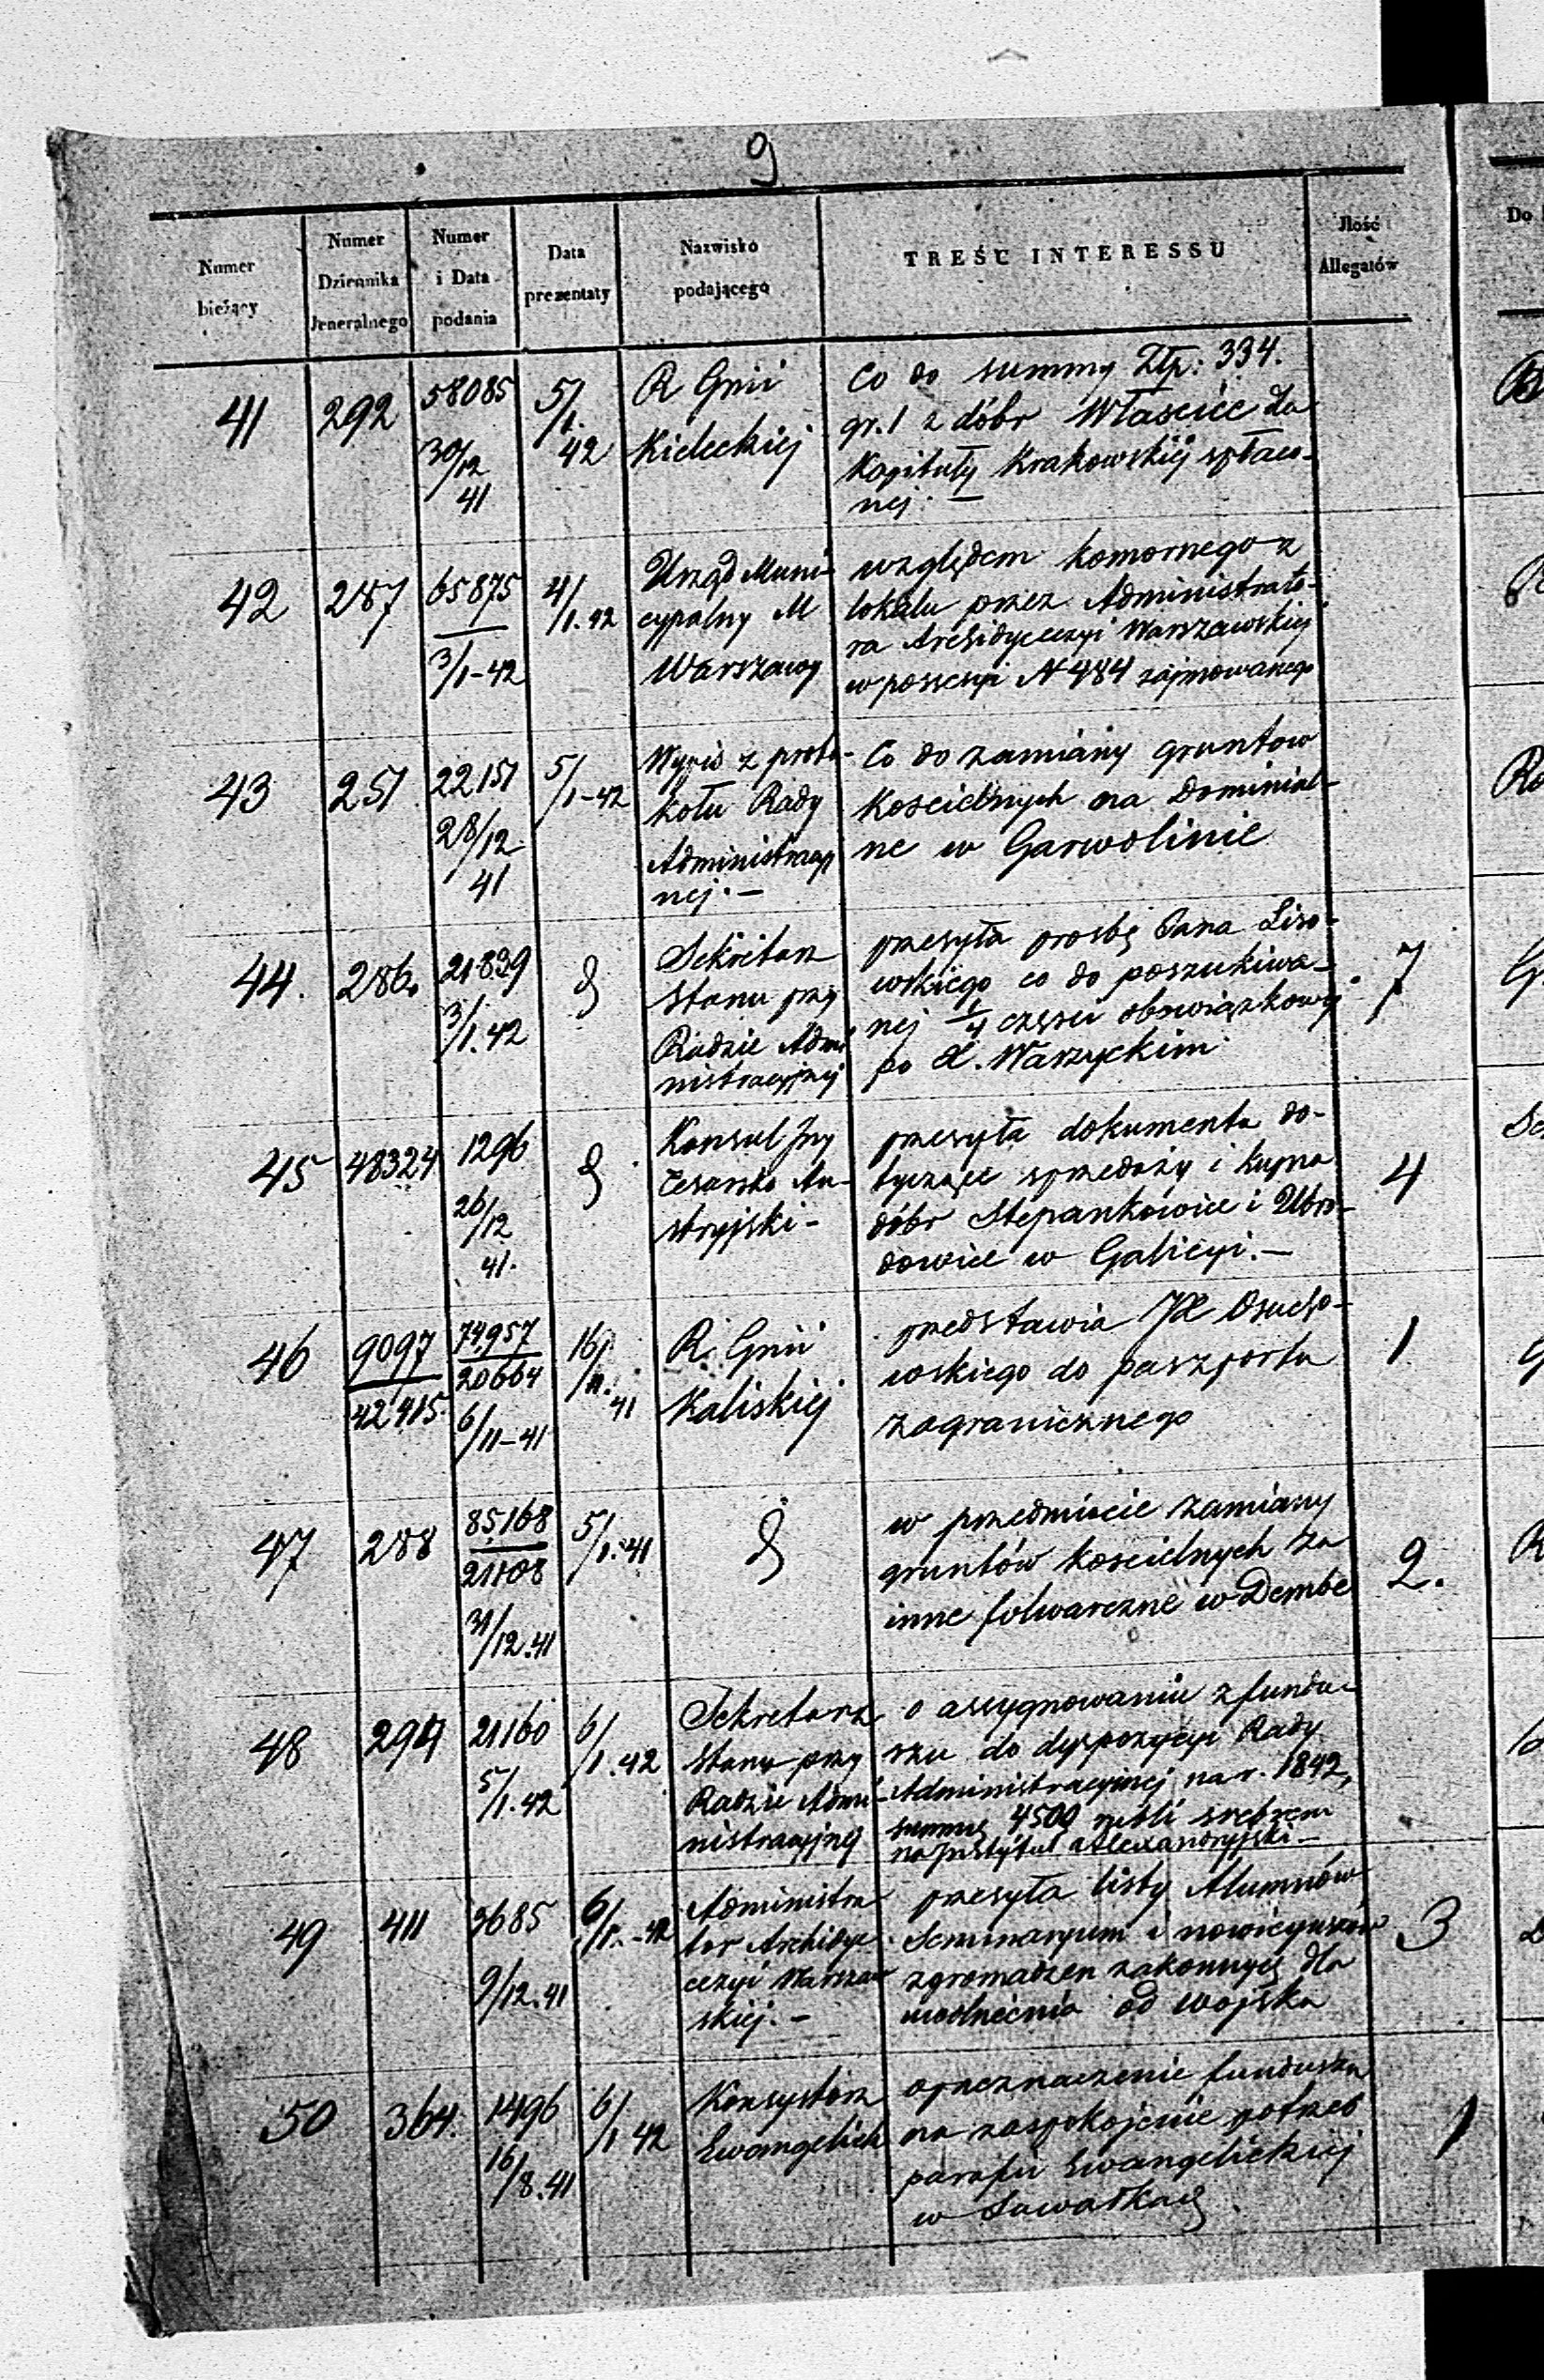 9
Numer bieżący
Numer Dziennika Jeneralnego
Numer i Data podania
Data prezentaty
Nazwisko podającego
TREŚĆ INTERESSU
Jlość Allegatów
Do
41
292
58085
30/12
41
5/1.
42
R Gnii
Kieleckiej
Co do summy Złp: 334.
gr. 1 z dóbr Właście dla
Kapituły Krakowskiéj spłaco-
nej. —
42
287
65875
3/1-42
4/1.42
Urząd Muni-
cypalny M
Warszawy
względem komornego z
lokalu przez Administrato-
ra Archidyecezyi Warszawskiej
w possesyi N 484 zajmowanego
43
251
22151
28/12
41
5/1-42
Wypis z proto-
kołu Rady
Administracyj
nej. —
Co do zamiany gruntow
Kościelnych na Dominial-
ne w Garwolinie
44.
286.
21839
3/1.42
Sekretarz
Stanu przy
Radzie Admi
nistracyjnej
przesyła prosbę Pana Liso-
wskiego co do poszukiwa-
nej 1/4 części obowiązkowej
po X. Warzyckim
7
45
48324
1296
26/12
41.
Konsul Jny
Cesarsko Au-
stryjski -
przesyła dokumenta do-
tyczące sprzedaży i kupna
dóbr Stepankowice i Ubro-
dowice w Galicyi. —
4
46
9097
42415
74957
20664
6/11-41
16/11.
41
R. Gnii
Kaliskiej
przedstawia JX Osucho-
wskiego do paszportu
zagranicznego
1
47
288
85168
21108
31/12.41
5/1.41
w przedmiocie zamiany
gruntów kościelnych za
inne folwarczne w Dembe
2.
48
294
21160
5/1.42
6/1.42
Sekretarz
Stanu przy
Radzie Admi-
nistracyjnej
o assygnowaniu z fundu-
szu do dyspozycyi Rady
Administracyjnej na r. 1842,
summę 4500 rubli srebrem
na Jnstytut Alexandryjski —
49
411
3685
9/12.41
6/1.-42
Administra
tor Archidye
cezyi Warszaw
skiej. -
przesyła listy Alumnów
Seminaryum i nowicyuszów
zgromadzen zakonnych dla
uwolnienia od wojska
3
50
364.
1496
16/8.41
6/1 42
Konsystorz
Ewangelick
o przeznaczenie funduszu
na zaspokojenie potrzeb
parafii Ewangelickiej
w Suwałkach.
1